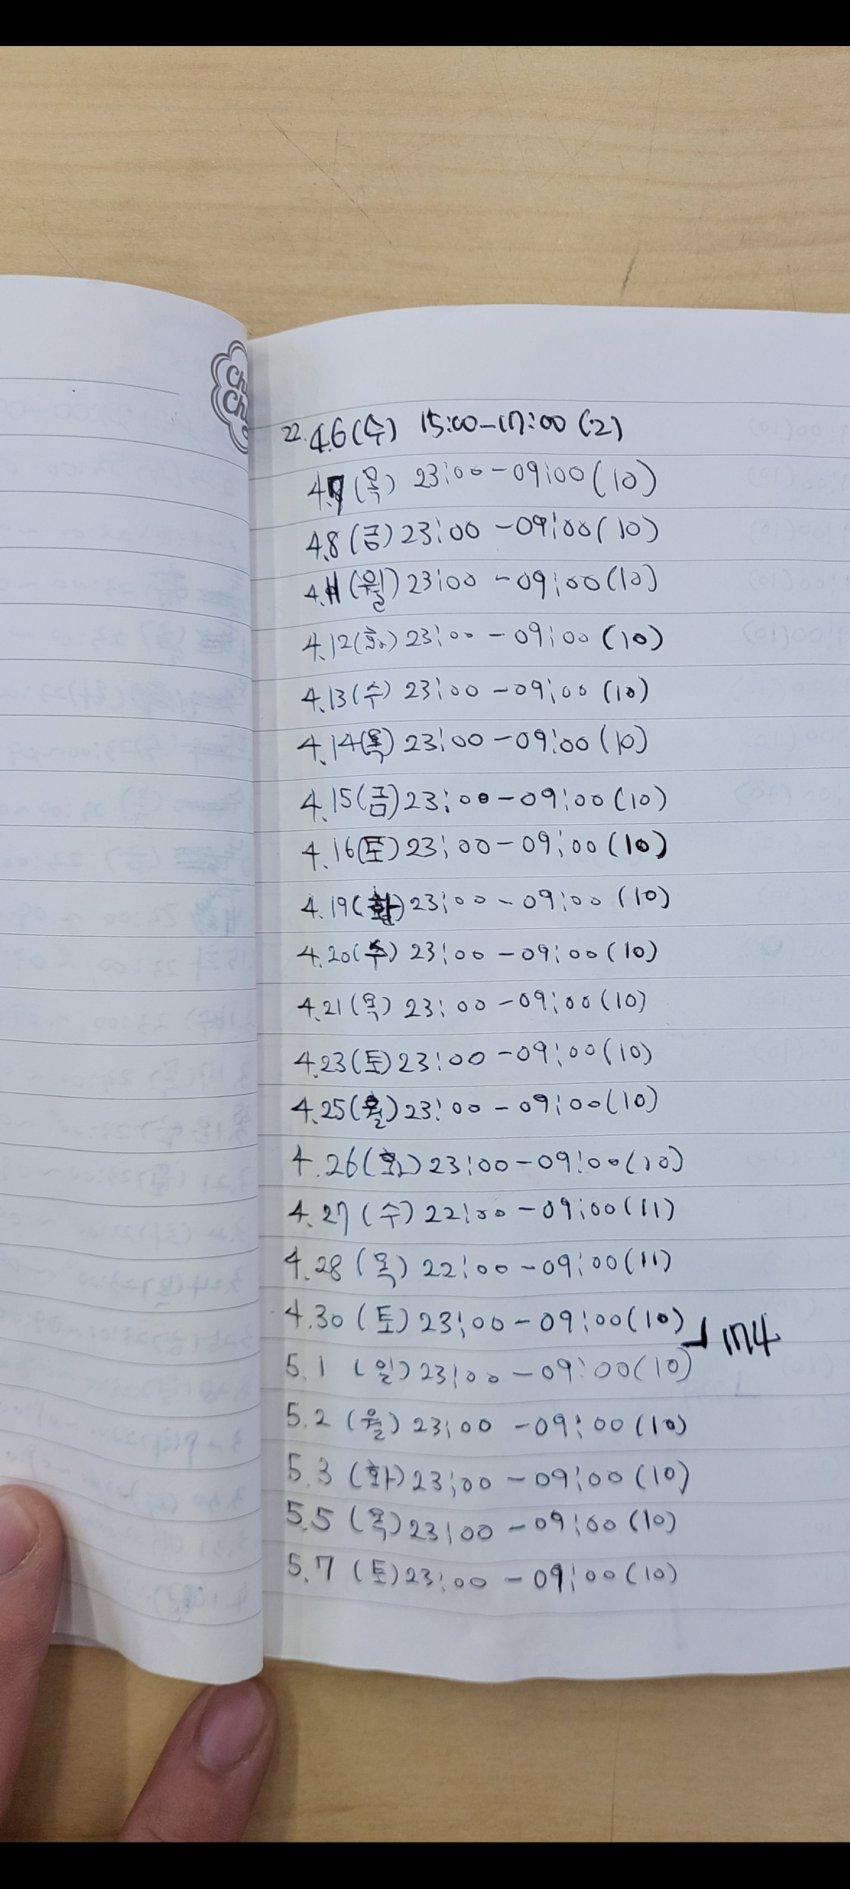 Ch
Ch
22. 4.6(수) 15:00-17:00 (2)
4.7(목) 23:00-09:00(10)
4.8(금) 23:00-09:00(10)
4.11(월) 23:00-09:00(10)
4.12(화) 23:00-09:00(10)
4.13(수) 23:00-09:00(10)
4.14(목) 23:00-09:00(10)
4.15(금) 23:00-09:00(10)
4.16(토) 23:00-09:00(10)
4.19(화) 23:00-09:00(10)
4.20(수) 23:00-09:00(10)
4.21(목) 23:00-09:00(10)
4.23(토) 23:00-09:00(10)
4.25(월) 23:00-09:00(10)
4.26(화) 23:00-09:00(10)
4.27(수) 22:00-09:00(11)
4.28(목) 22:00-09:00(11)
4.30(토) 23:00-09:00(10) 174
5.1(일) 23:00-09:00(10)
5.2(월) 23:00-09:00(10)
5.3(화) 23:00-09:00(10)
5.5(목) 23:00-09:00(10)
5.7(토) 23:00-09:00(10)